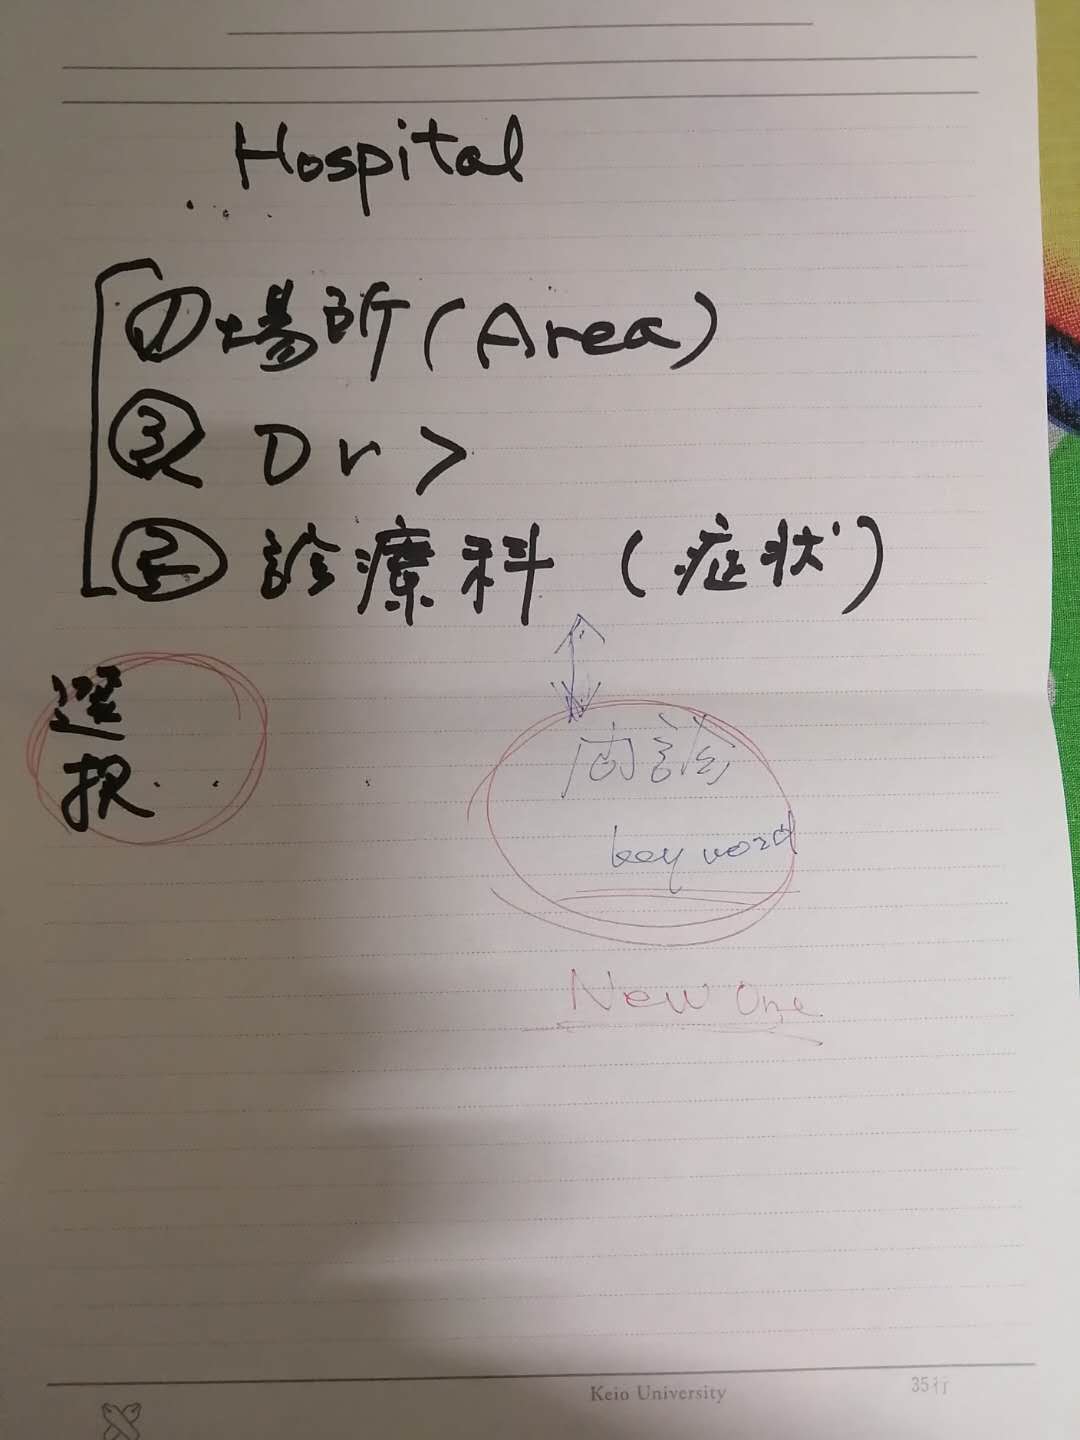 Hospital
① 場所 (Area)
③ Dr >
② 診療科 (症状)
選
択
問診
key word
New One
Keio University
35行